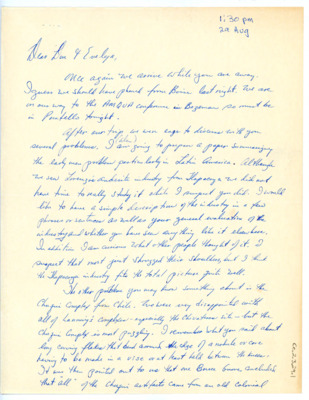 1:30 pm
29 Aug
Dear Don & Evelyn,
Once again we arrive while you are away.
I guess we should have phoned from Boise last night. We are
on our way to the AMQUA conference in Bozeman so must be
in Pocatello tonight.
After our trip we were eager to discuss with you
several problems. I am going to prepare a paper summarizing
the early man problem particularly in Latin America. Although
we saw Lorenzo's industry from Tlapacoya we did not
have time to really study it while I suspect you did. I would
like to have a simple description of the industry in a few
phrases or sentences as well as your general evaluation of the
industry and whether you have seen anything like it elsewhere.
In addition I am curious what other people thought of it. I
suspect that most just shrugged their shoulders, but I think
the Tlapacoya industry fits the total picture quite well.
The other problem you may know something about is the
Chapin Complex from Chile. Two were very disappointed with
all of Lanning's complexes - especially the Chivateros site - but the
Chapin Complex is most puzzling. I remember what you said about
long curving flakes that bend around the edge of a nodule or core
having to be made in a vise or at least held between the knees.
It was then pointed out to me that one
"that all" of the Chapin artifacts came from an old colonial